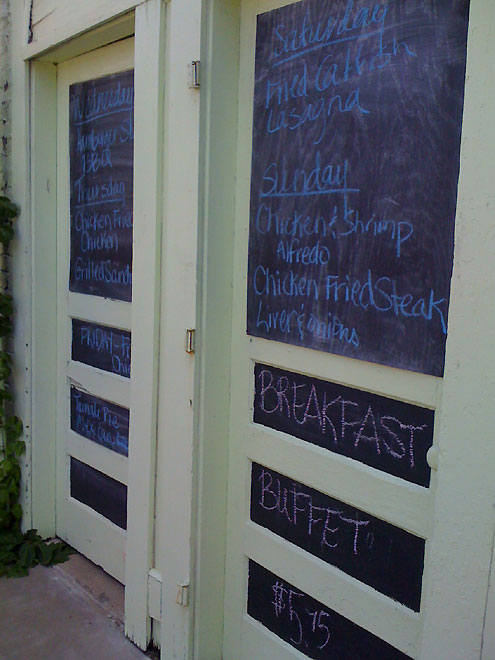 Wednesday
Hamburger St
BBQ
Thursday
Chicken Fried
Chicken
Grilled Sand
FRIDAY-F
Chi
Tamale Pie
Mex
Saturday
Fried Catfish
Lasagna
Sunday
Chicken & Shrimp
Alfredo
Chicken Fried Steak
Liver & onions
BREAKFAST
BUFFET
$5.75